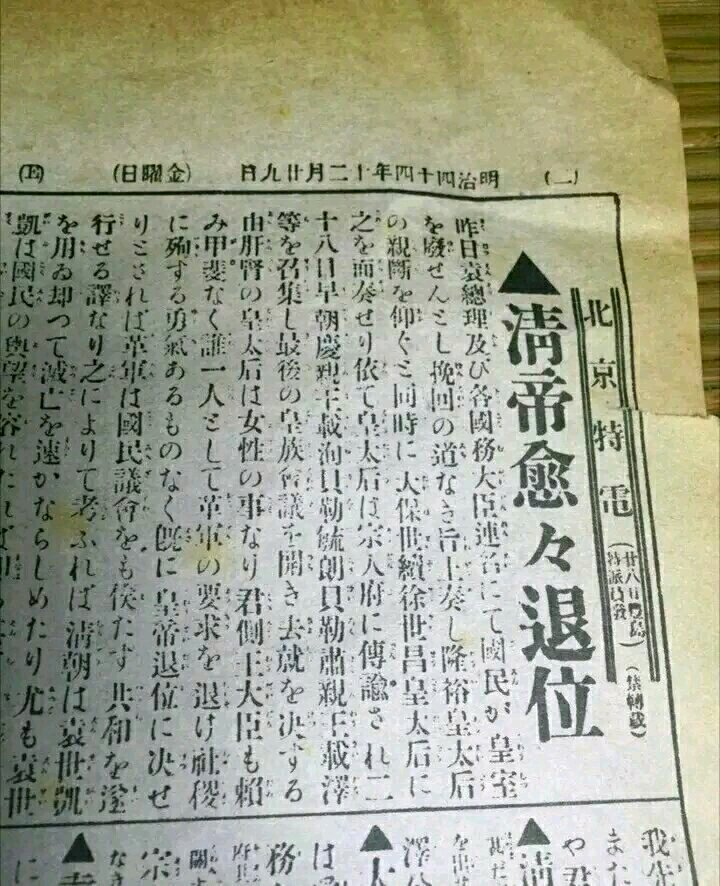 (二) 明治四十四年十二月廿九日 (金曜日)
北京特電
(廿八日豊島特派員發)
(禁轉載)
▲清帝愈々退位
昨日袁總理及び各國務大臣連名にて國民が皇室
を廢せんとし挽回の道なき旨上奏し隆裕皇太后
の親斷を仰ぐと同時に大保世續徐世昌皇太后に
之を面奏せり依て皇太后は宗人府に傳諭され二
十八日早朝慶親王載洵貝勒毓朗貝勒肅親王載澤
等を召集し最後の皇族會議を開き去就を決する
由肝腎の皇太后は女性の事なり君側王大臣も賴
み甲斐なく誰一人として革軍の要求を退け社稷
に殉する勇氣あるものなく既に皇帝退位に決せ
りとされば革軍は國民議會をも俟たず共和を遂
行せる譯なり之によりて考ふれば清朝は袁世凱
を用ゐ却つて滅亡を速かならしめたり尤も袁世
凱は國民の輿望を容れたれば
我
また
や
▲清
を
澤
▲
は
務
宗
▲
に